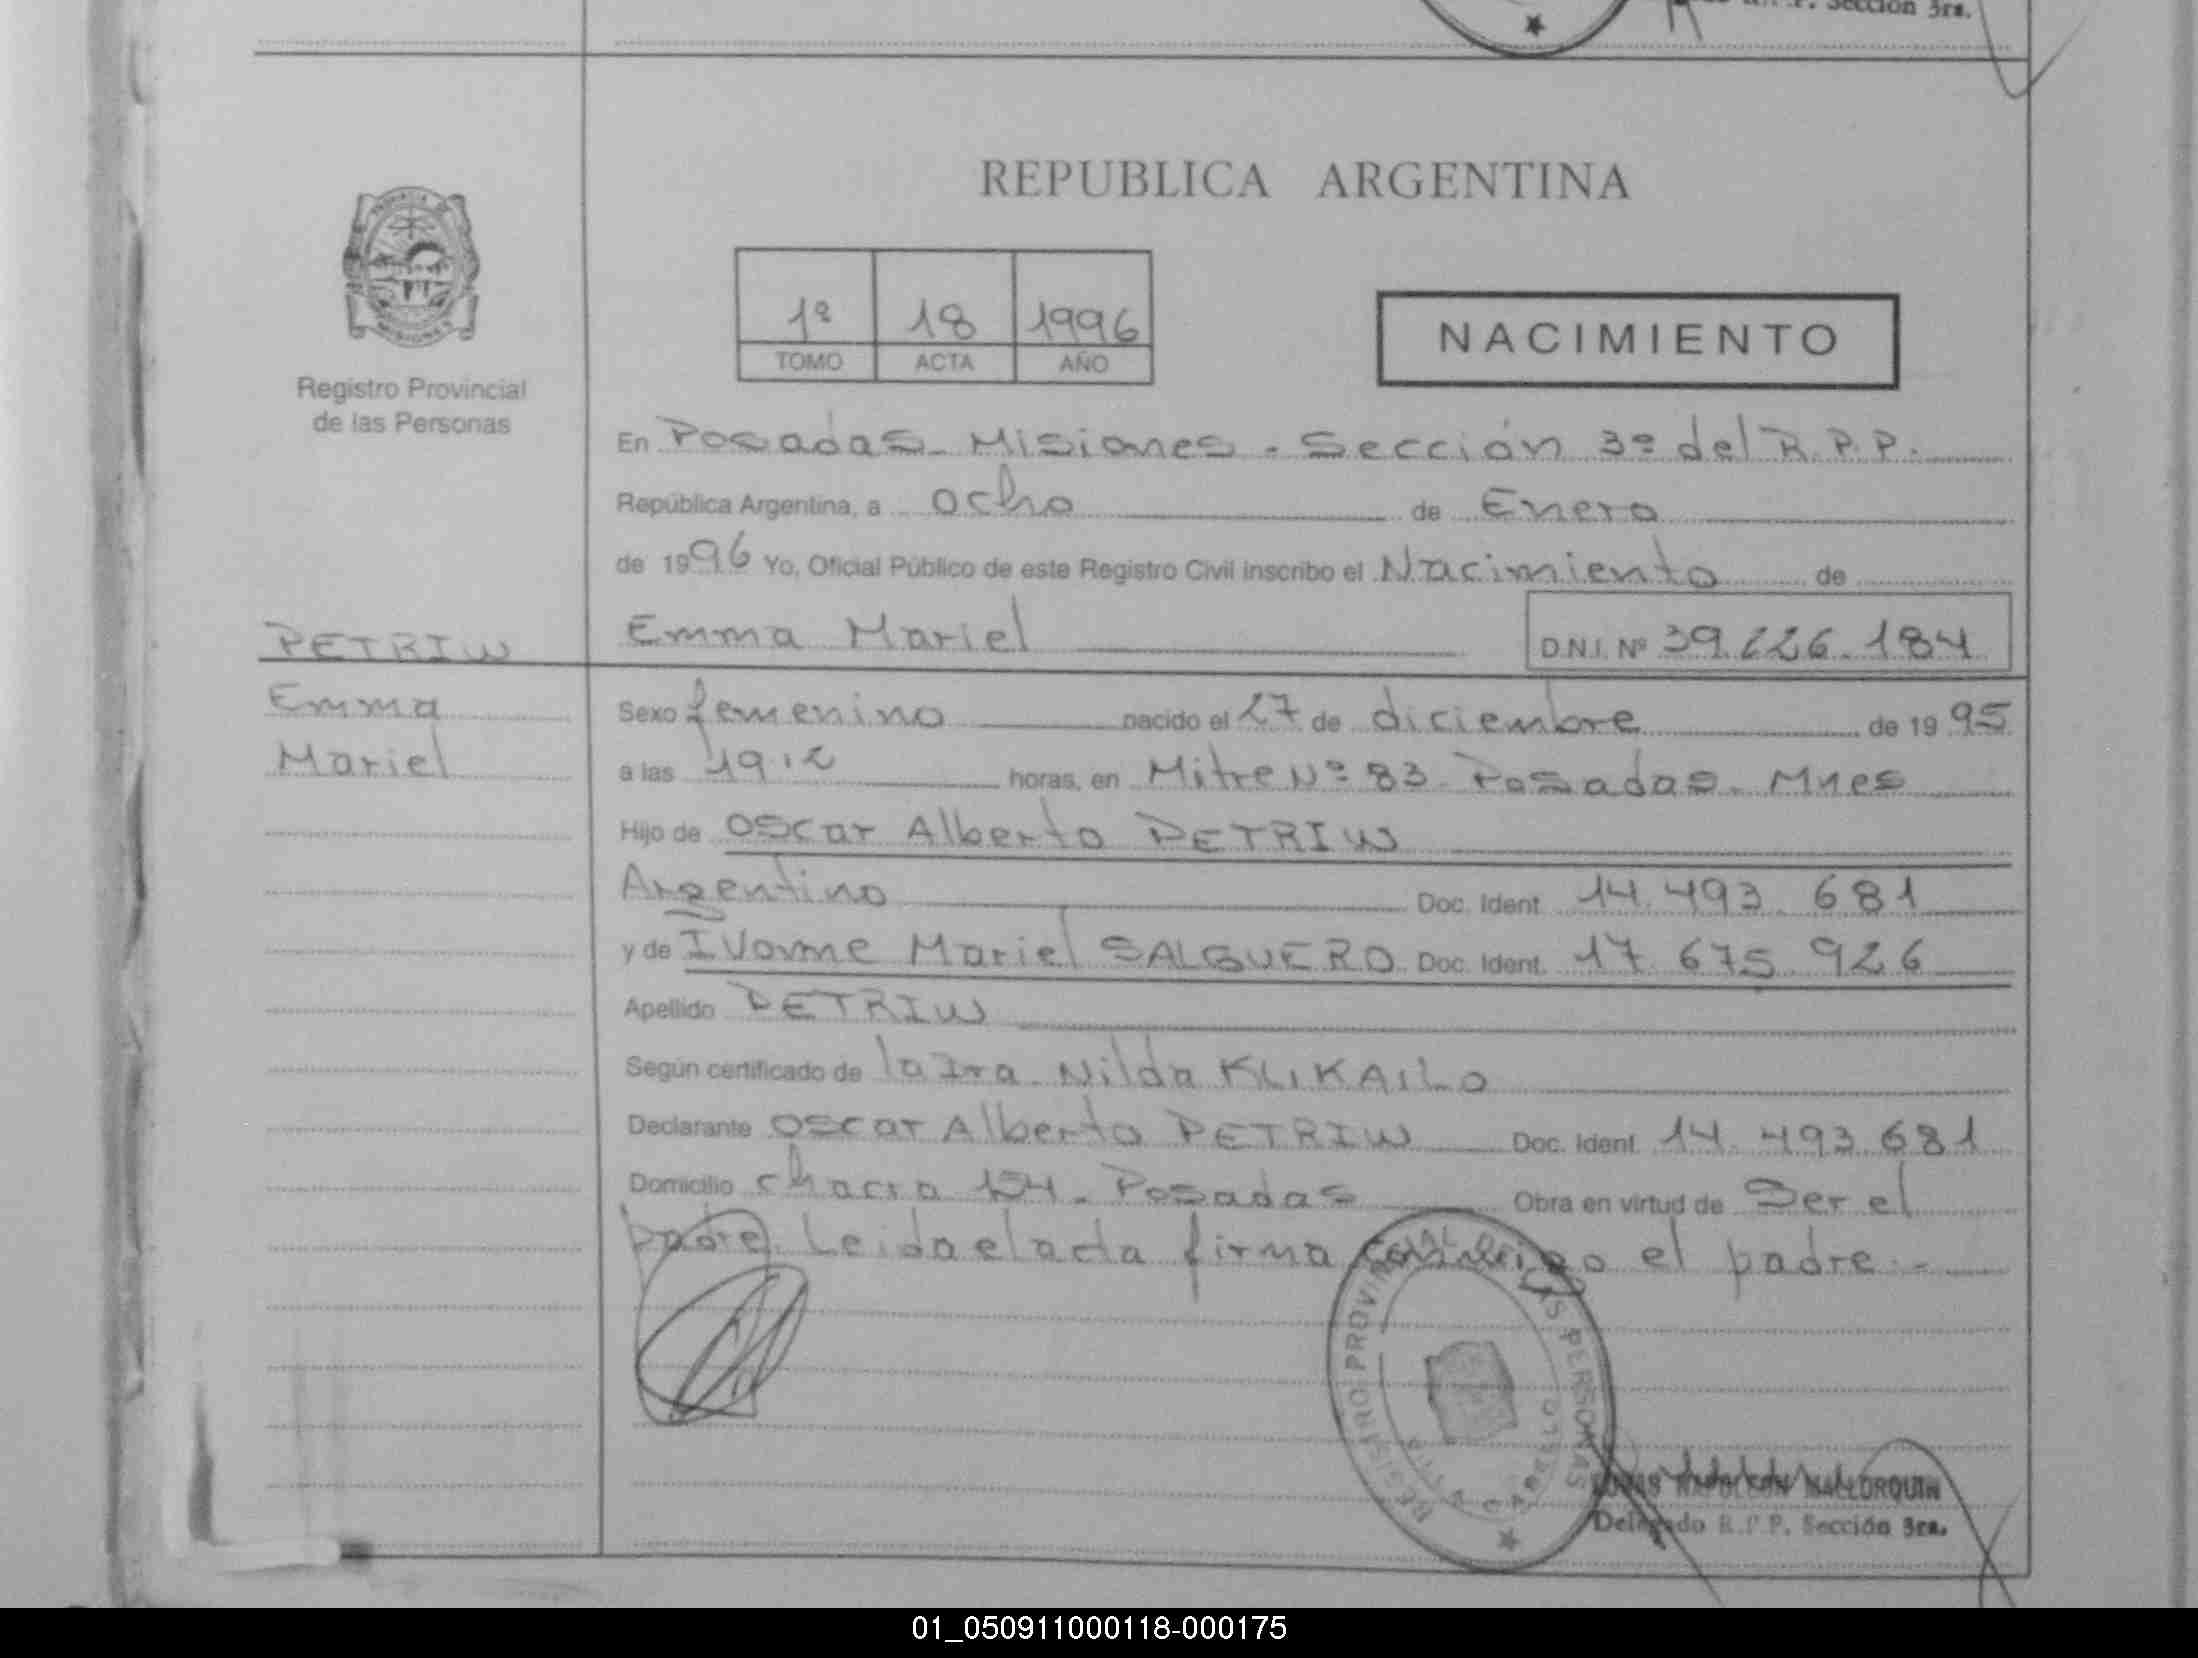 Sección 3ra.
REPUBLICA ARGENTINA
1º 18 1996
TOMO ACTA AÑO
NACIMIENTO
Registro Provincial
de las Personas
En Posadas - Misiones - Sección 3º del R.P.P.
República Argentina, a ocho de Enero
de 1996 Yo, Oficial Público de este Registro Civil inscribo el Nacimiento de
Emma Mariel D.N.I. Nº 39.226.184
PETRIW
Emma
Mariel
Sexo femenino nacido el 27 de diciembre de 1995
a las 19.12 horas, en Mitre Nº 83 - Posadas - Mnes
Hijo de Oscar Alberto PETRIW
Argentino Doc. Ident. 14.493.681
y de Ivonne Mariel SALGUERO Doc. Ident. 17.675.926
Apellido PETRIW
Según certificado de la Dra. Nilda KLIKAILO
Declarante Oscar Alberto PETRIW Doc. Ident. 14.493.681
Domicilio chacra 154 - Posadas Obra en virtud de Ser el
padre. Leida el acta firma conmigo el padre.-
REGISTRO PROVINCIAL DE LAS PERSONAS
NAPOLEON MALLORQUIN
Delegado R.P.P. Sección 3ra.
01_050911000118-000175